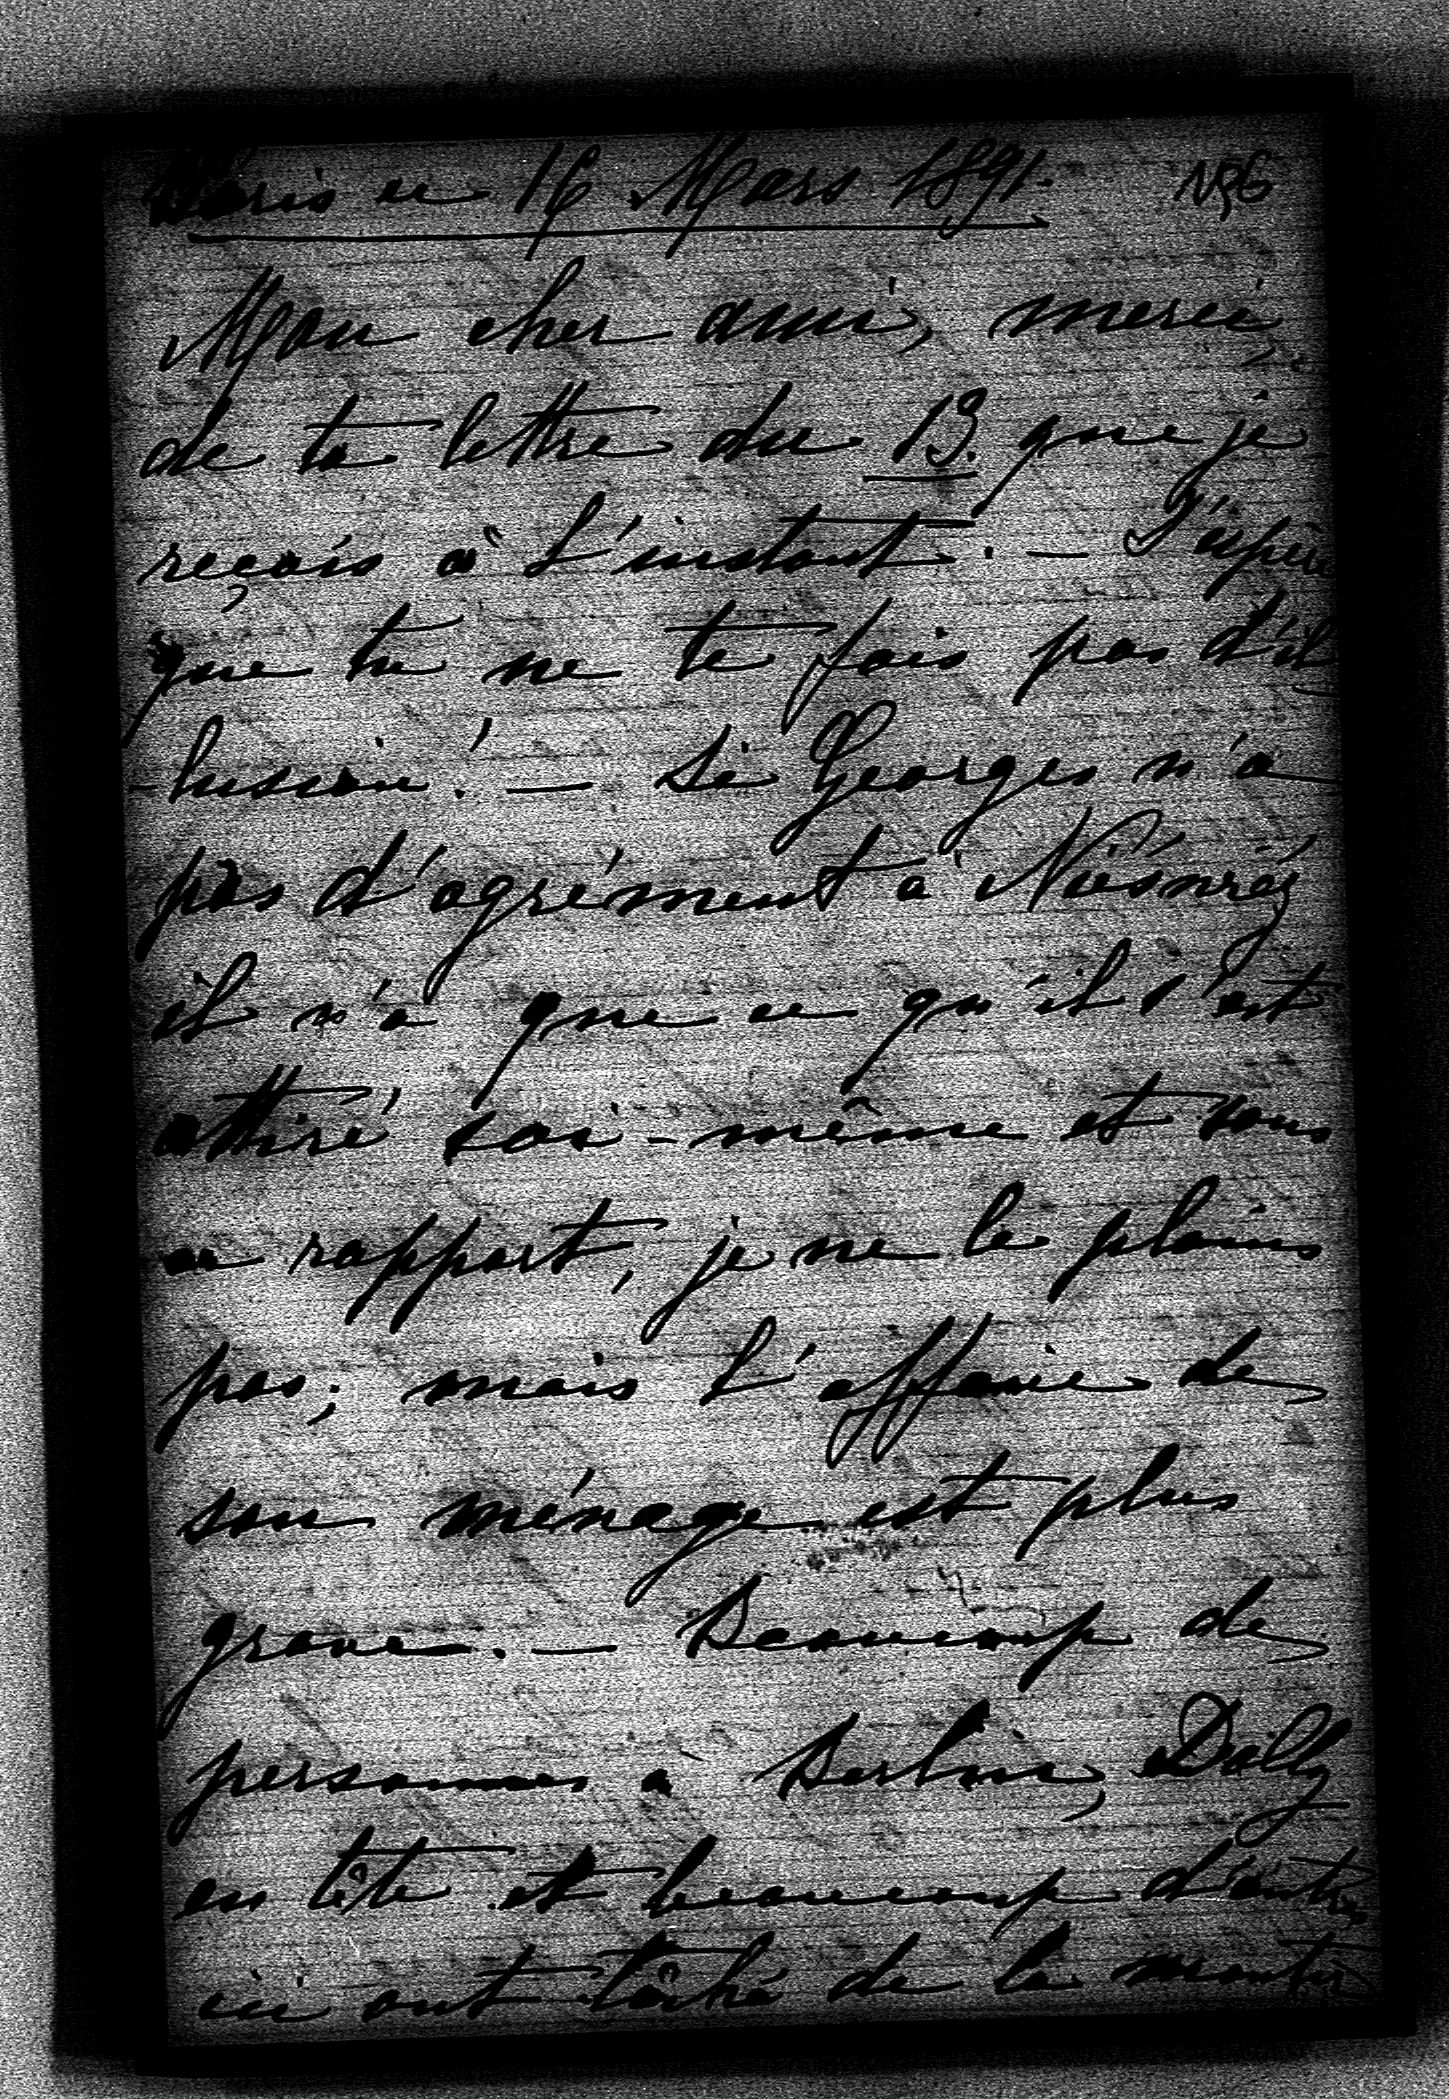 Paris ce 16 Mars 1891.
Mon cher ami, merci
de ta lettre du 13. que je
reçois à l'instant. — J'éspère
que tu ne te fais pas d'il
-lusion! — Si Georges n'a
pas d'agrément à Niésnréj
il n'a que ce qu'il s'est
attiré soi-même et sous
ce rapport, je ne le plains
pas; mais l'affaire de
son ménage est plus
grave. — Beaucoup de
personnes à Berlin, Dolly
en tête et beaucoup d'autres
ici ont tâché de la monter